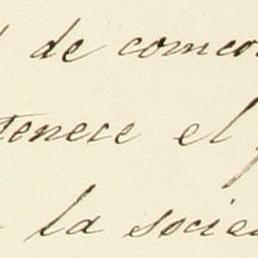 de comco
tenece el
la socie